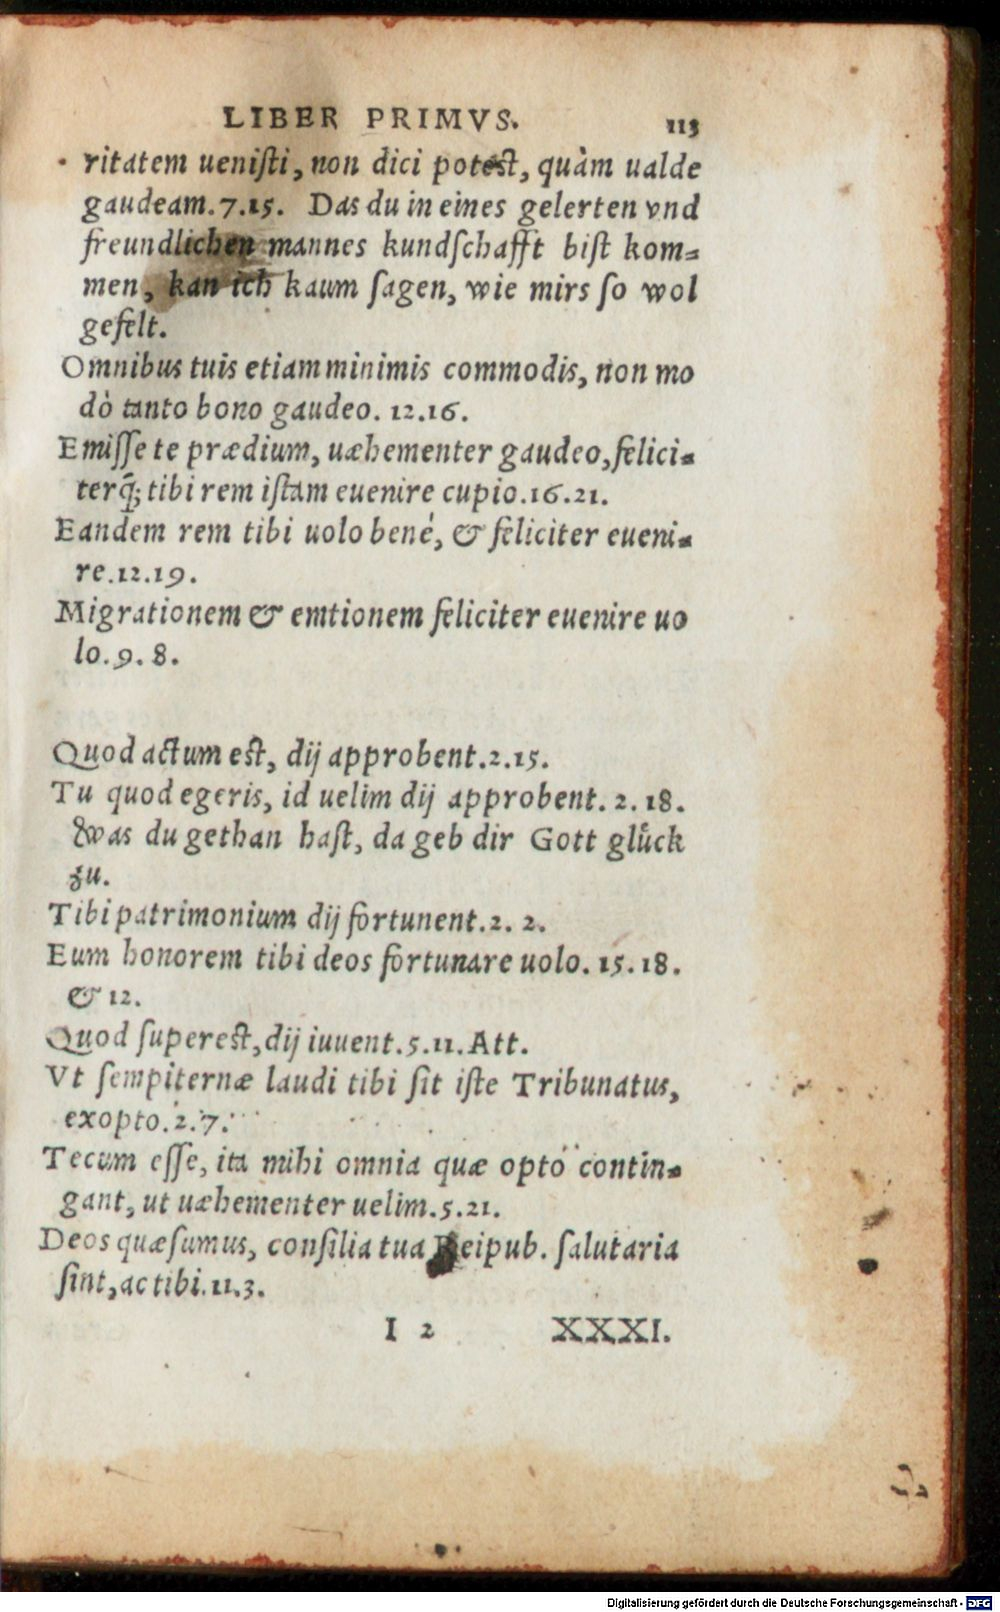 LIBER PRIMVS. 113
ritatem ueniſti, non dici potest, quàm ualde
gaudeam. 7.15. Das du in eines gelerten vnd
freundlichen mannes kundſchafft biſt kom⸗
men, kan ich kaum ſagen, wie mirs ſo wol
gefelt.
Omnibus tuis etiam minimis commodis, non mo
dò tanto bono gaudeo. 12.16.
Emiſſe te prædium, uæhementer gaudeo, felici⸗
terq́; tibi rem iſtam euenire cupio. 16.21.
Eandem rem tibi uolo bené, & feliciter eueni⸗
re. 12.19.
Migrationem & emtionem feliciter euenire uo
lo. 9. 8.
Quod actum eſt, dij approbent. 2.15.
Tu quod egeris, id uelim dij approbent. 2. 18.
Was du gethan haſt, da geb dir Gott glück
zu.
Tibi patrimonium dij fortunent. 2. 2.
Eum honorem tibi deos fortunare uolo. 15.18.
& 12.
Quod ſupereſt, dij iuuent. 5.11. Att.
Vt ſempiternæ laudi tibi ſit iſte Tribunatus,
exopto. 2.7.
Tecum eſſe, ita mihi omnia quæ opto contin⸗
gant, ut uæhementer uelim. 5.21.
Deos quæſumus, conſilia tua Reipub. ſalutaria
ſint, ac tibi. 11.3.
I 2 XXXI.
Digitalisierung gefördert durch die Deutsche Forschungsgemeinschaft - DFG